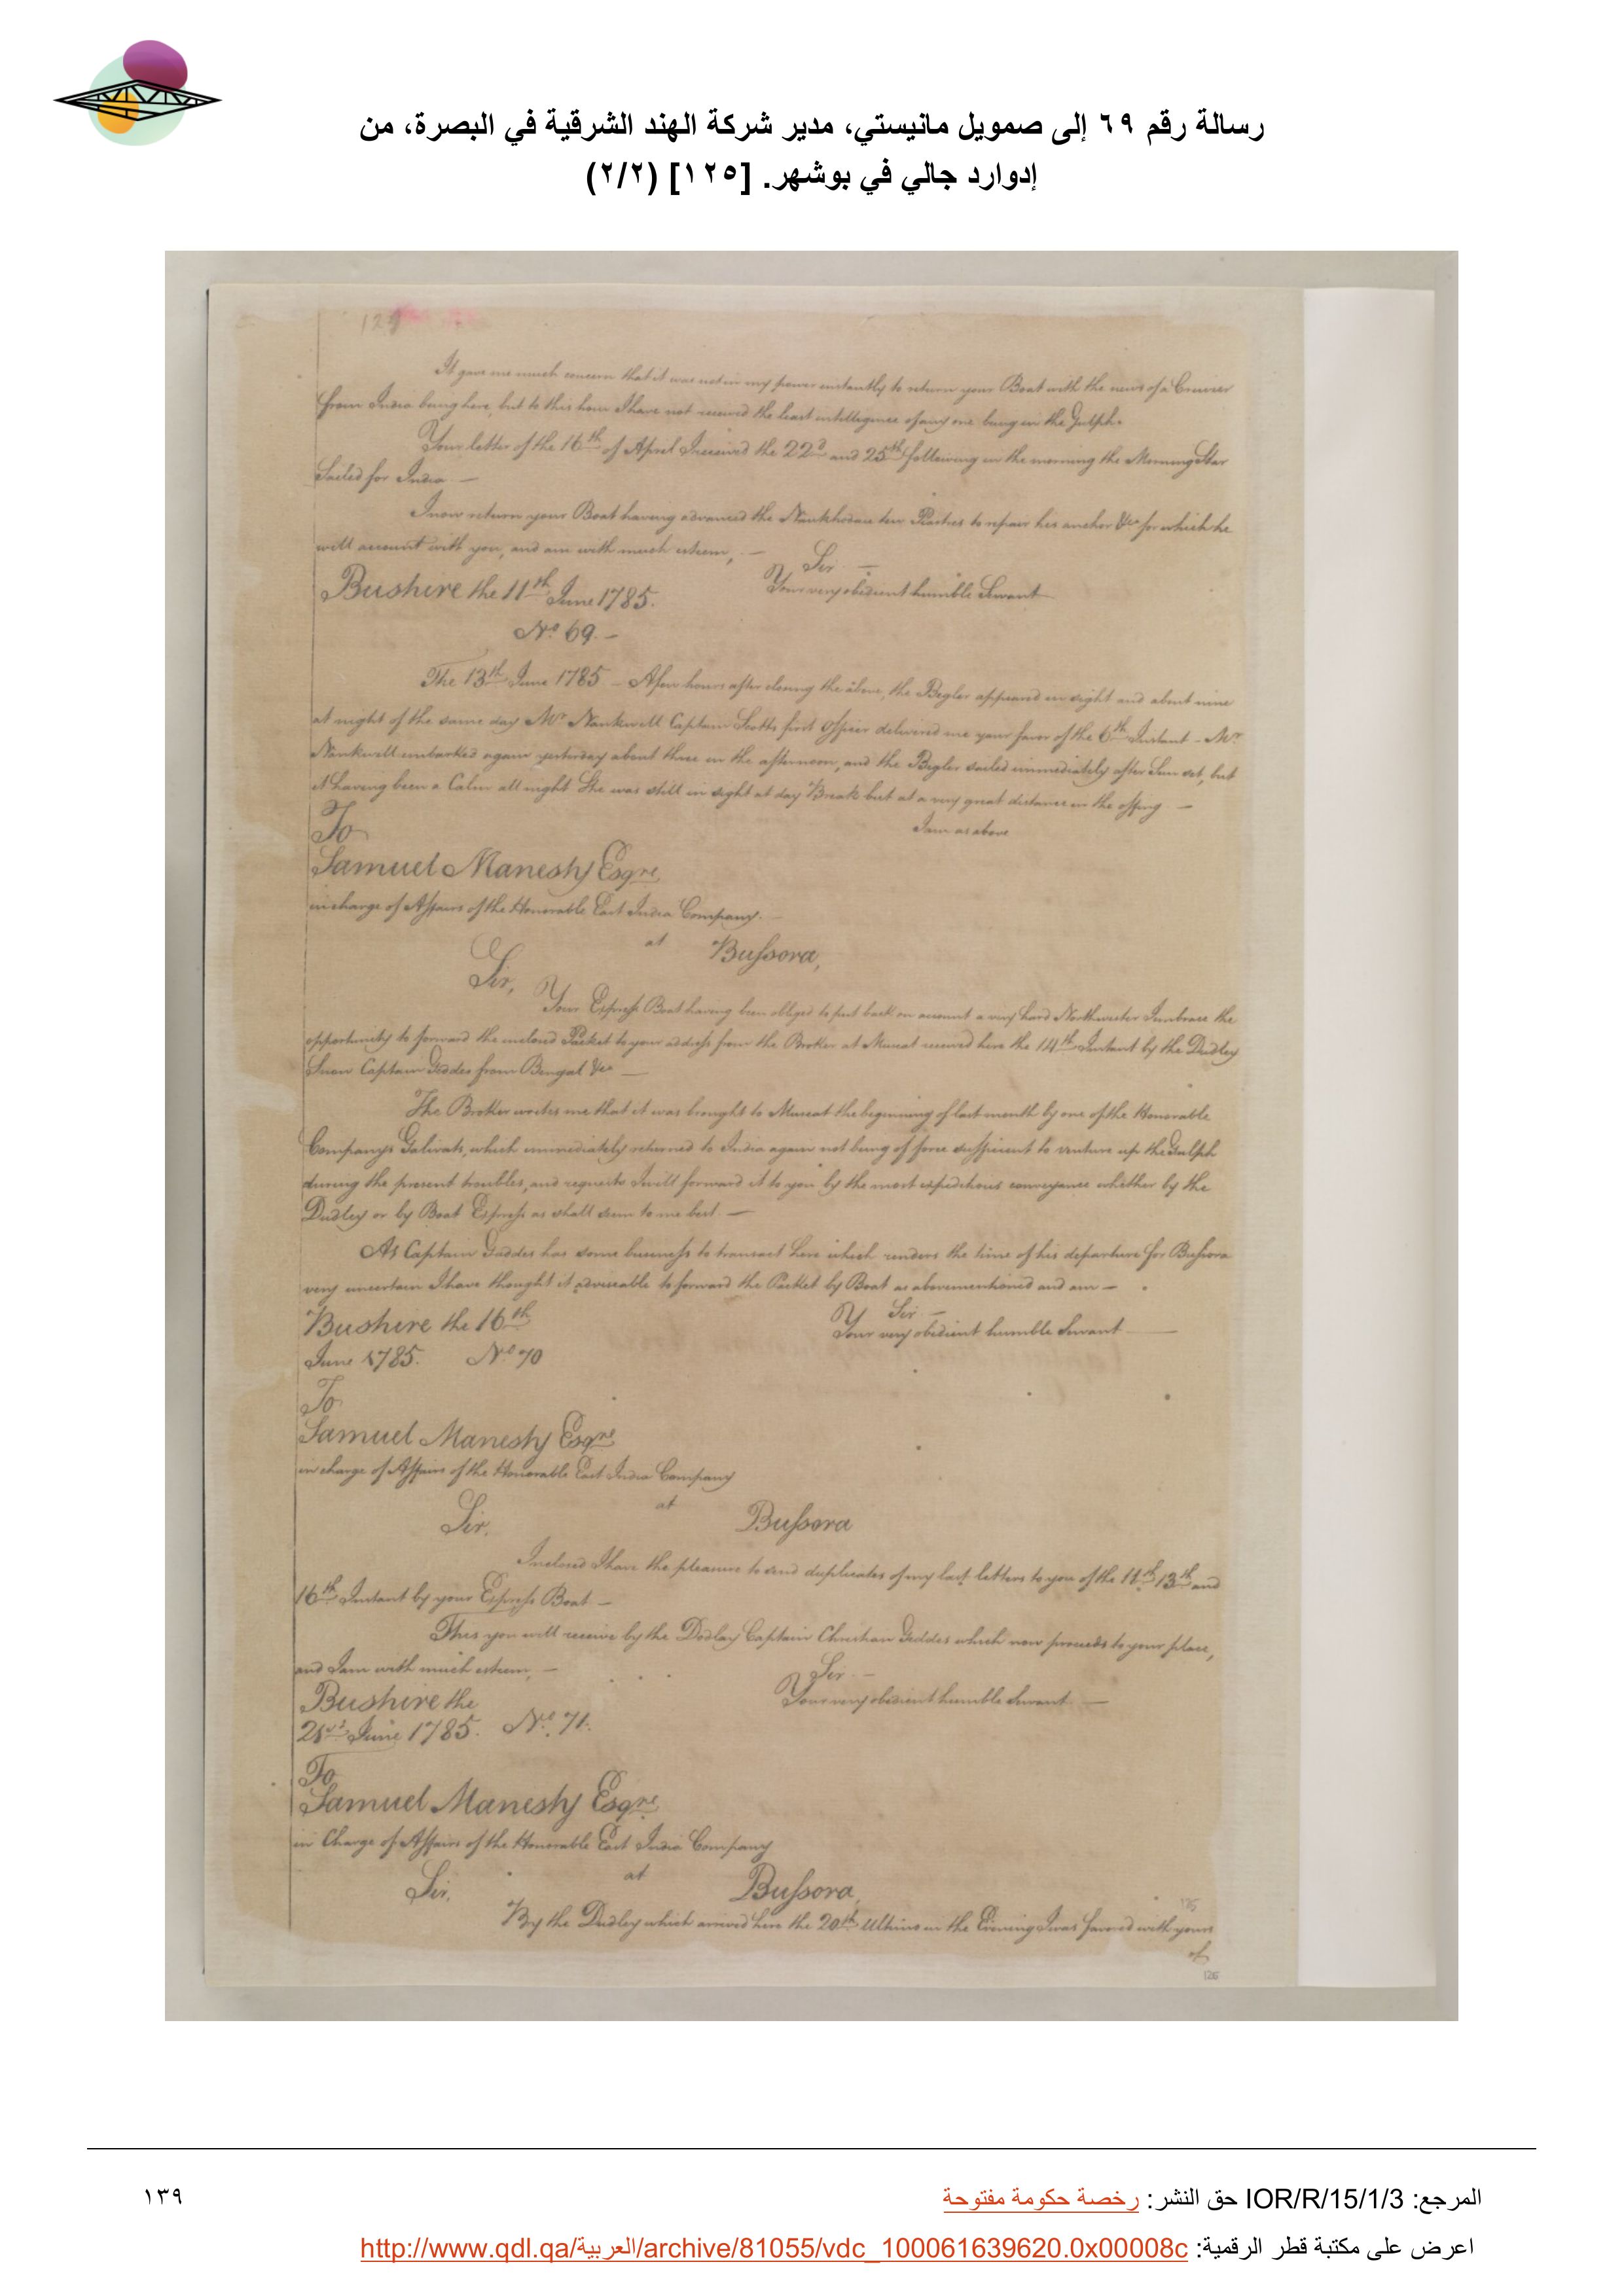 رسالة رقم ٦٩ إلى صمويل مانيستي، مدير شركة الهند الشرقية في البصرة، من
إدوارد جالي في بوشهر. [١٢٥] (٢/٢)
129
It gave me much concern that it was not in my power instantly to return your Boat with the news of a Cruiser
from India being here, but to this hour I have not received the least intelligence of any one being in the Gulph.
Your letter of the 16th of April I received the 22d and 25th following in the morning the Morning Star
Sailed for India —
I now return your Boat having advanced the Nankhodau ten Piastres to repair his anchor &ca for which he
will account with you, and am with much esteem, —
Sir —
Your very obedient humble Servant
Bushire the 11th June 1785.
No 69. —
The 13th June 1785 — A few hours after closing the above, the Begler appeared in sight and about nine
at night of the same day Mr Nankwell Captain Scotts first Officer delivered me your favor of the 6th Instant — Mr
Nankwell embarked again yesterday about three in the afternoon, and the Begler sailed immediately after Sun set, but
it having been a Calm all night She was still in sight at day Break but at a very great distance in the offing —
I am as above
To
Samuel Manesty Esqre
in charge of Affairs of the Honorable East India Company.
at Bussora,
Sir,
Your Express Boat having been obliged to put back on account a very hard Northwester I embrace the
opportunity to forward the inclosed Packet to your address from the Broker at Muscat received here the 14th Instant by the Dudley
Snow Captain Geddes from Bengal &ca —
The Broker writes me that it was brought to Muscat the beginning of last month by one of the Honorable
Companys Galivats, which immediately returned to India again not being of force sufficient to venture up the Gulph
during the present troubles, and requests I will forward it to you by the most expeditious conveyance whether by the
Dudley or by Boat Express as shall seem to me best. —
As Captain Geddes has some business to transact here which renders the time of his departure for Bussora
very uncertain I have thought it adviseable to forward the Packet by Boat as abovementioned and am —
Sir —
Your very obedient humble Servant
Bushire the 16th
June 1785. No 70
To
Samuel Manesty Esqre
in charge of Affairs of the Honorable East India Company
at Bussora
Sir,
Inclosed I have the pleasure to send duplicates of my last letters to you of the 11th 13th and
16th Instant by your Express Boat —
This you will receive by the Dudley Captain Christian Geddes which now proceeds to your place,
and I am with much esteem, —
Sir —
Your very obedient humble Servant —
Bushire the
21st June 1785. No. 71.
To
Samuel Manesty Esqre
in Charge of Affairs of the Honorable East India Company
at Bussora,
Sir,
By the Dudley which arrived here the 20th Ultimo in the Evening I was favored with yours
of
125
126
المرجع: IOR/R/15/1/3 حق النشر: رخصة حكومة مفتوحة
١٣٩
اعرض على مكتبة قطر الرقمية: http://www.qdl.qa/العربية/archive/81055/vdc_100061639620.0x00008c